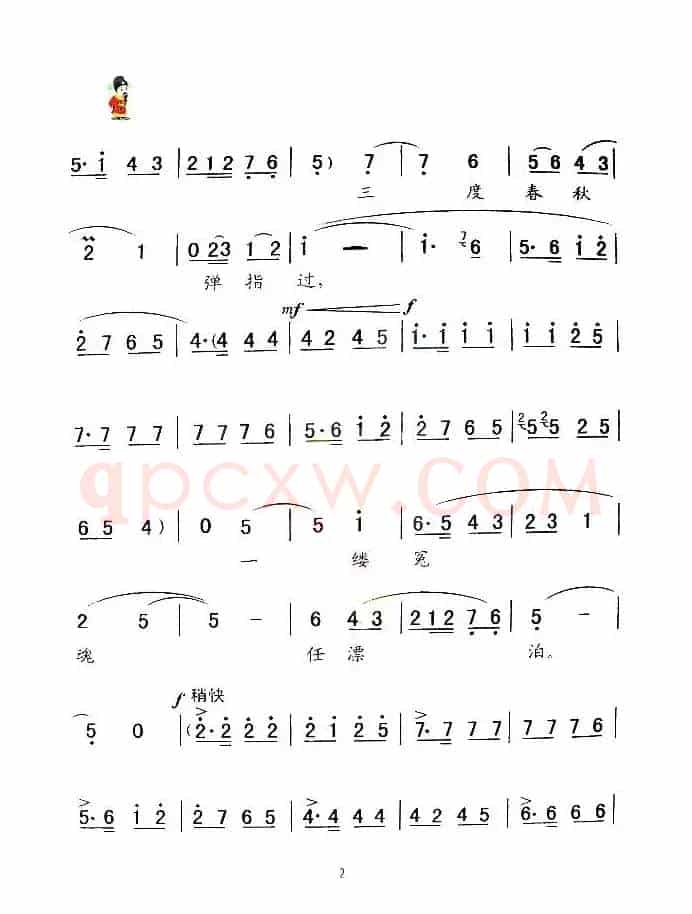 5· i 4 3 | 2 1 2 7 6 | 5) 7 | 7 6 | 5 6 4 3
三 度 春 秋
2 1 | 0 2 3 1 2 | i — | i· 7 6 | 5· 6 i 2
弹 指 过，
mf f
2 7 6 5 | 4·(4 4 4 | 4 2 4 5 | i· i i i | i i 2 5
7· 7 7 7 | 7 7 7 6 | 5· 6 i 2 | 2 7 6 5 | 2 5 2 5 2 5
qpcxw.COM
6 5 4) | 0 5 | 5 i | 6· 5 4 3 | 2 3 1
一 缕 冤
2 5 | 5 – | 6 4 3 | 2 1 2 7 6 | 5 –
魂 任 漂 泊。
f 稍快
5 0 | (2· 2 2 2 | 2 i 2 5 | 7· 7 7 7 | 7 7 7 6
5· 6 i 2 | 2 7 6 5 | 4· 4 4 4 | 4 2 4 5 | 6· 6 6 6
2